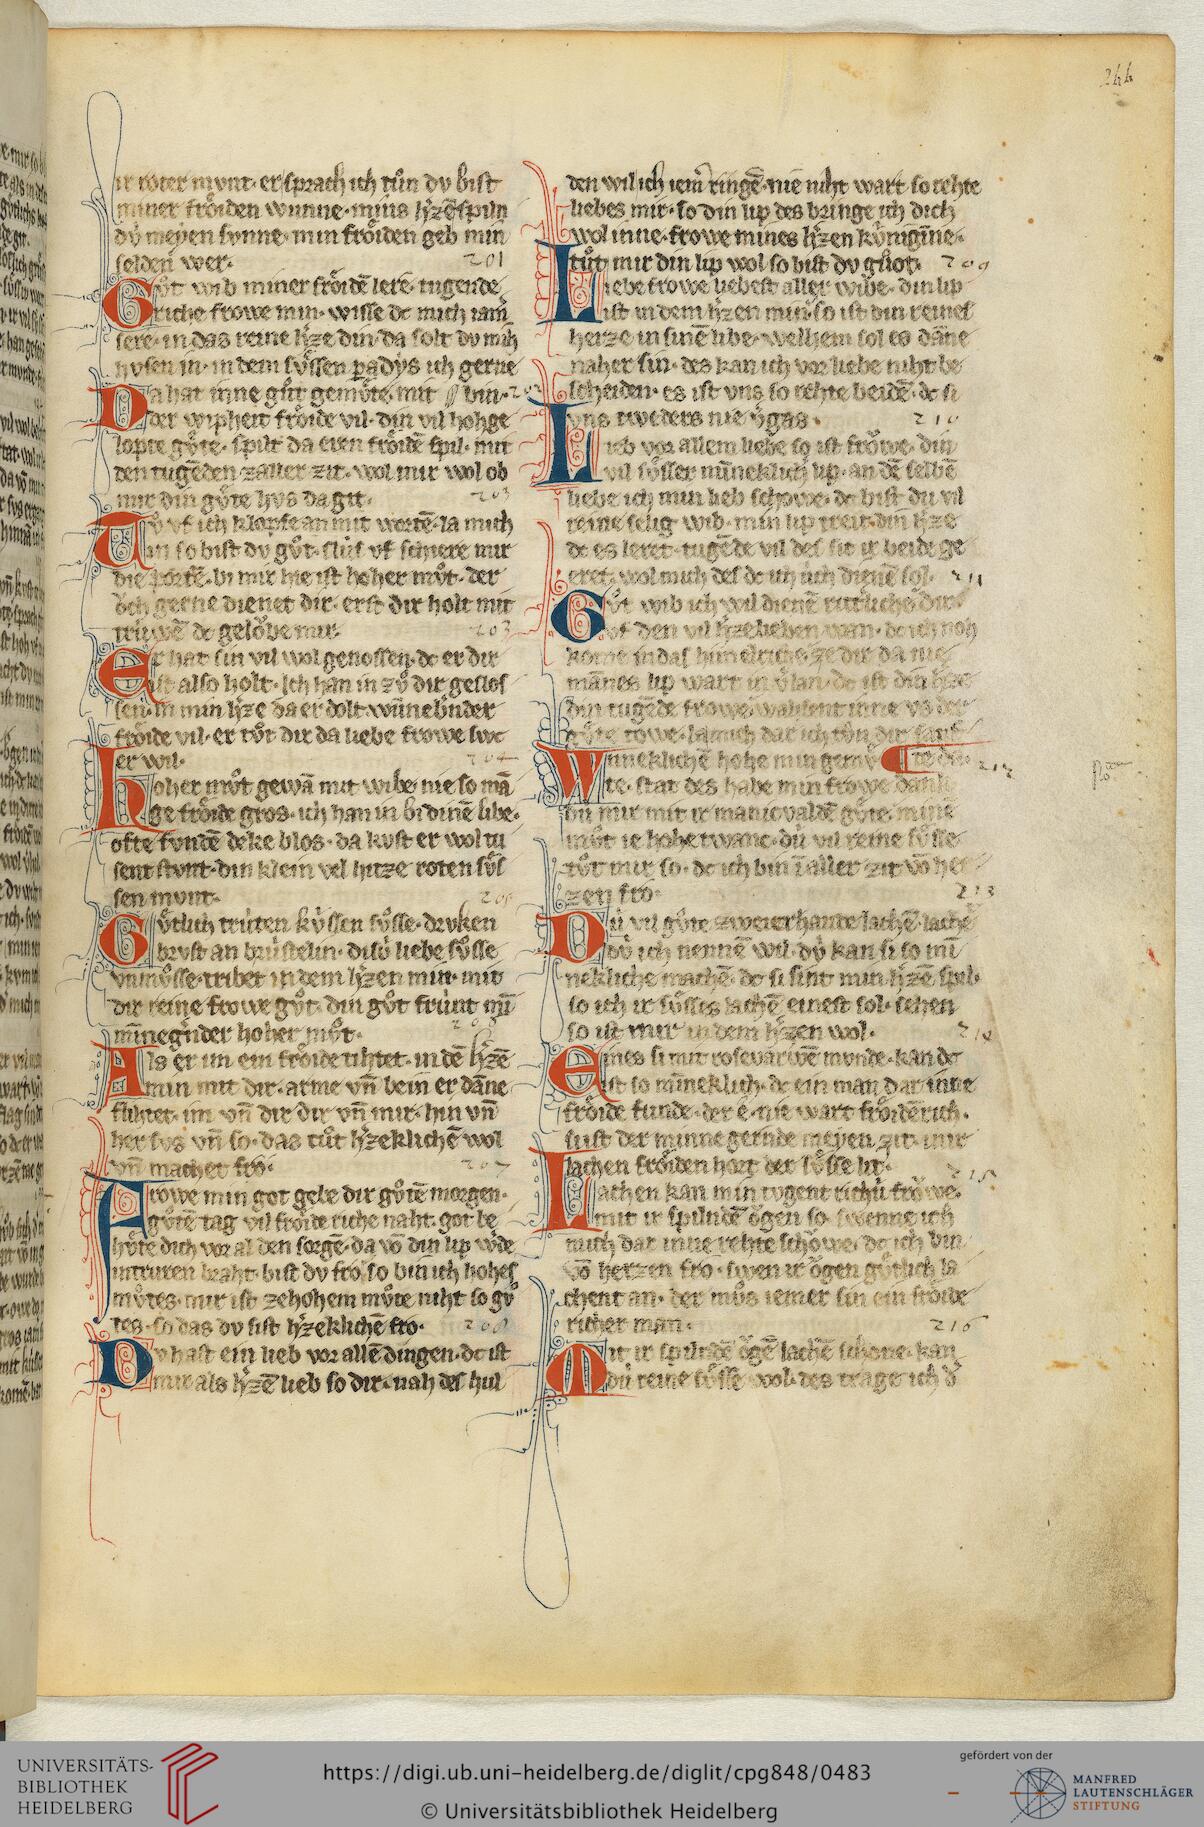 244
ir roter mvnt · er sprach ich tůn dv bist
miner fröiden wunne · mins h̾zē spiln
dv́ meyen svnne · min fröiden geb min
selden wer · 201
Gůt wib miner fröidē lere · tugende
riche frowe min · wisse dc mich iam̾
sere · in das reine h̾ze din · da solt dv mih
hvsen in · in dem sv́ssen padys ich gerne
Da hat inne gůt gemv̊te · mit bin · 202
der wipheit fröide vil · din vil hohge
lopte gv̊te · spilt da eren fröidē spil · mit
den tugēden zaller zit · wol mir wol ob
mir din gv̊te hvs da git · 203
Tů vf ich klopfe an mit wortē · la mich
in so bist dv gůt · slús vf schiere mir
die portē · bi mir hie ist hoher můt · der
öch gerne dienet dir · er ist dir holt mit
trúwē dc gelöbe mir · 203
Er hat sin vil wol genossen · dc er dir
ist also holt · Ich han in zů dir geslos
sen · in min h̾ze da er dolt · wūneb̾nder
fröide vil · er tůt dir da liebe frowe swc
er wil · 204
Hoher můt gewā mit wibe nie so mā
ge fröide gros · ich han in bi dinē libe ·
ofte fvndē deke blos · da kvst er wol tu
sent stvnt · din klein vel hitze roten sv́s
sen mvnt · 205
Gv̊tlich trúten kv́ssen sv̊sse · drvken
brvst an brústelin · disv́ liebe sv̊sse
vnmv̊sse · tribet in dem h̾zen min · mit
dir reine frowe gůt · din gůt frúnt mī
mīneg̾nder hoher můt · 206
Als er im ein fröide tihtet · in dē h̾zē
min mit dir · arme vn̄ bein er dāne
fihtet · im vn̄ dir dir vn̄ mir · hin vn̄
her svs vn̄ so · das tůt h̾zeklichē wol
vn̄ machet fro · 207
Frowe min got gebe dir gv̊tē morgen ·
gv̊tē tag vil fröide riche naht · got be
hv̊te dich vor al den sorgē · da vō din lip w̾de
in truren braht · bist dv fro so bin ich hohes
mv̊tes · mir ist zehohem mv̊te niht so gů
tes · so das dv sist h̾zeklichē fro · 208
Dv hast ein lieb vor allē dingen · dc ist
mir als h̾zē lieb so dir · nah des hul
den wil ich iem̾ ringē · nie niht wart so rehte
liebes mir · so din lip des bringe ich dich
wol inne · frowe mines h̾zen kv́nigīne ·
tůt mir din lip wol so bist dv gůot · 209
Liebe frowe liebest aller wibe · din lip
ist in dem h̾zen min · so ist din reines
herze in sinē libe · welhem sol es dāne
naher sin · des kan ich vor liebe niht be
scheiden · es ist vns so rehte beidē · dc si
vns tweders nie v̊gas · 210
Lieb vor allem liebe so ist fröwe · din
vil sv̊sser mīneklich̾ lip · an dē selbē
liebe ich min lieb schowe · dc bist du vil
reine selig wib · min lip treit din h̾ze
dc es leret · tugēde vil des sit ir beide ge
eret · wol mich des dc ich úch dienē sol · 211
Gůt wib ich wil dienē ritt̾lichē dir ·
vf den vil h̾zelieben wan · dc ich noh
kome in das himelriche · ze dir da nie
māues lip wart in v̾lan · dc ist din h̾ze
din tugēde frowe · wahsent inne vō der
gv̊te towe · la mich dar ich tůn dir sanf
Wūneklichē hohe min gemv̊ te din 212
te · stat des habe min frowe dank ·
dú mir mit ir manicvaldē gv̊te · minē
můt ie hohe twanc · dú vil reine sv̊sse
tůt mir so · dc ich bin ī aller zit vō her
zen fro · 213
Dú vil gv̊te zweier hande lachē · lachē
dv́ ich nennē wil · dv́ kan si so mī
nekliche machē · dc si sint min h̾zē spil ·
so ich ir sv̊sses lachē einest sol · sehen
so ist mir in dem h̾zen wol · 214
Eines si mit rosevarwē mvnde · kan dc
ist so mīneklich · dc ein man dar inne
fröide funde · der e · nie wart fröidē rich ·
sust der minne gernde meyen zit · mir
lachen fröiden hort der sv̊sse lit · 215
Lachen kan min tvgent richú fröwe ·
mit ir spilndē ögen so · swenne ich
mich dar inne rehte schöwe · dc ich bin
vō herzen fro · swen ir ögen gv̊tlich la
chent an · der můs iemer sin ein fröide
richer man · 216
Mit ir spilndē ögē lachē schone · kan
dú reine sv̊sse wol · des trage ich d̾
UNIVERSITÄTS-
BIBLIOTHEK
HEIDELBERG
https://digi.ub.uni-heidelberg.de/diglit/cpg848/0483
© Universitätsbibliothek Heidelberg
gefördert von der
MANFRED
LAUTENSCHLÄGER
STIFTUNG